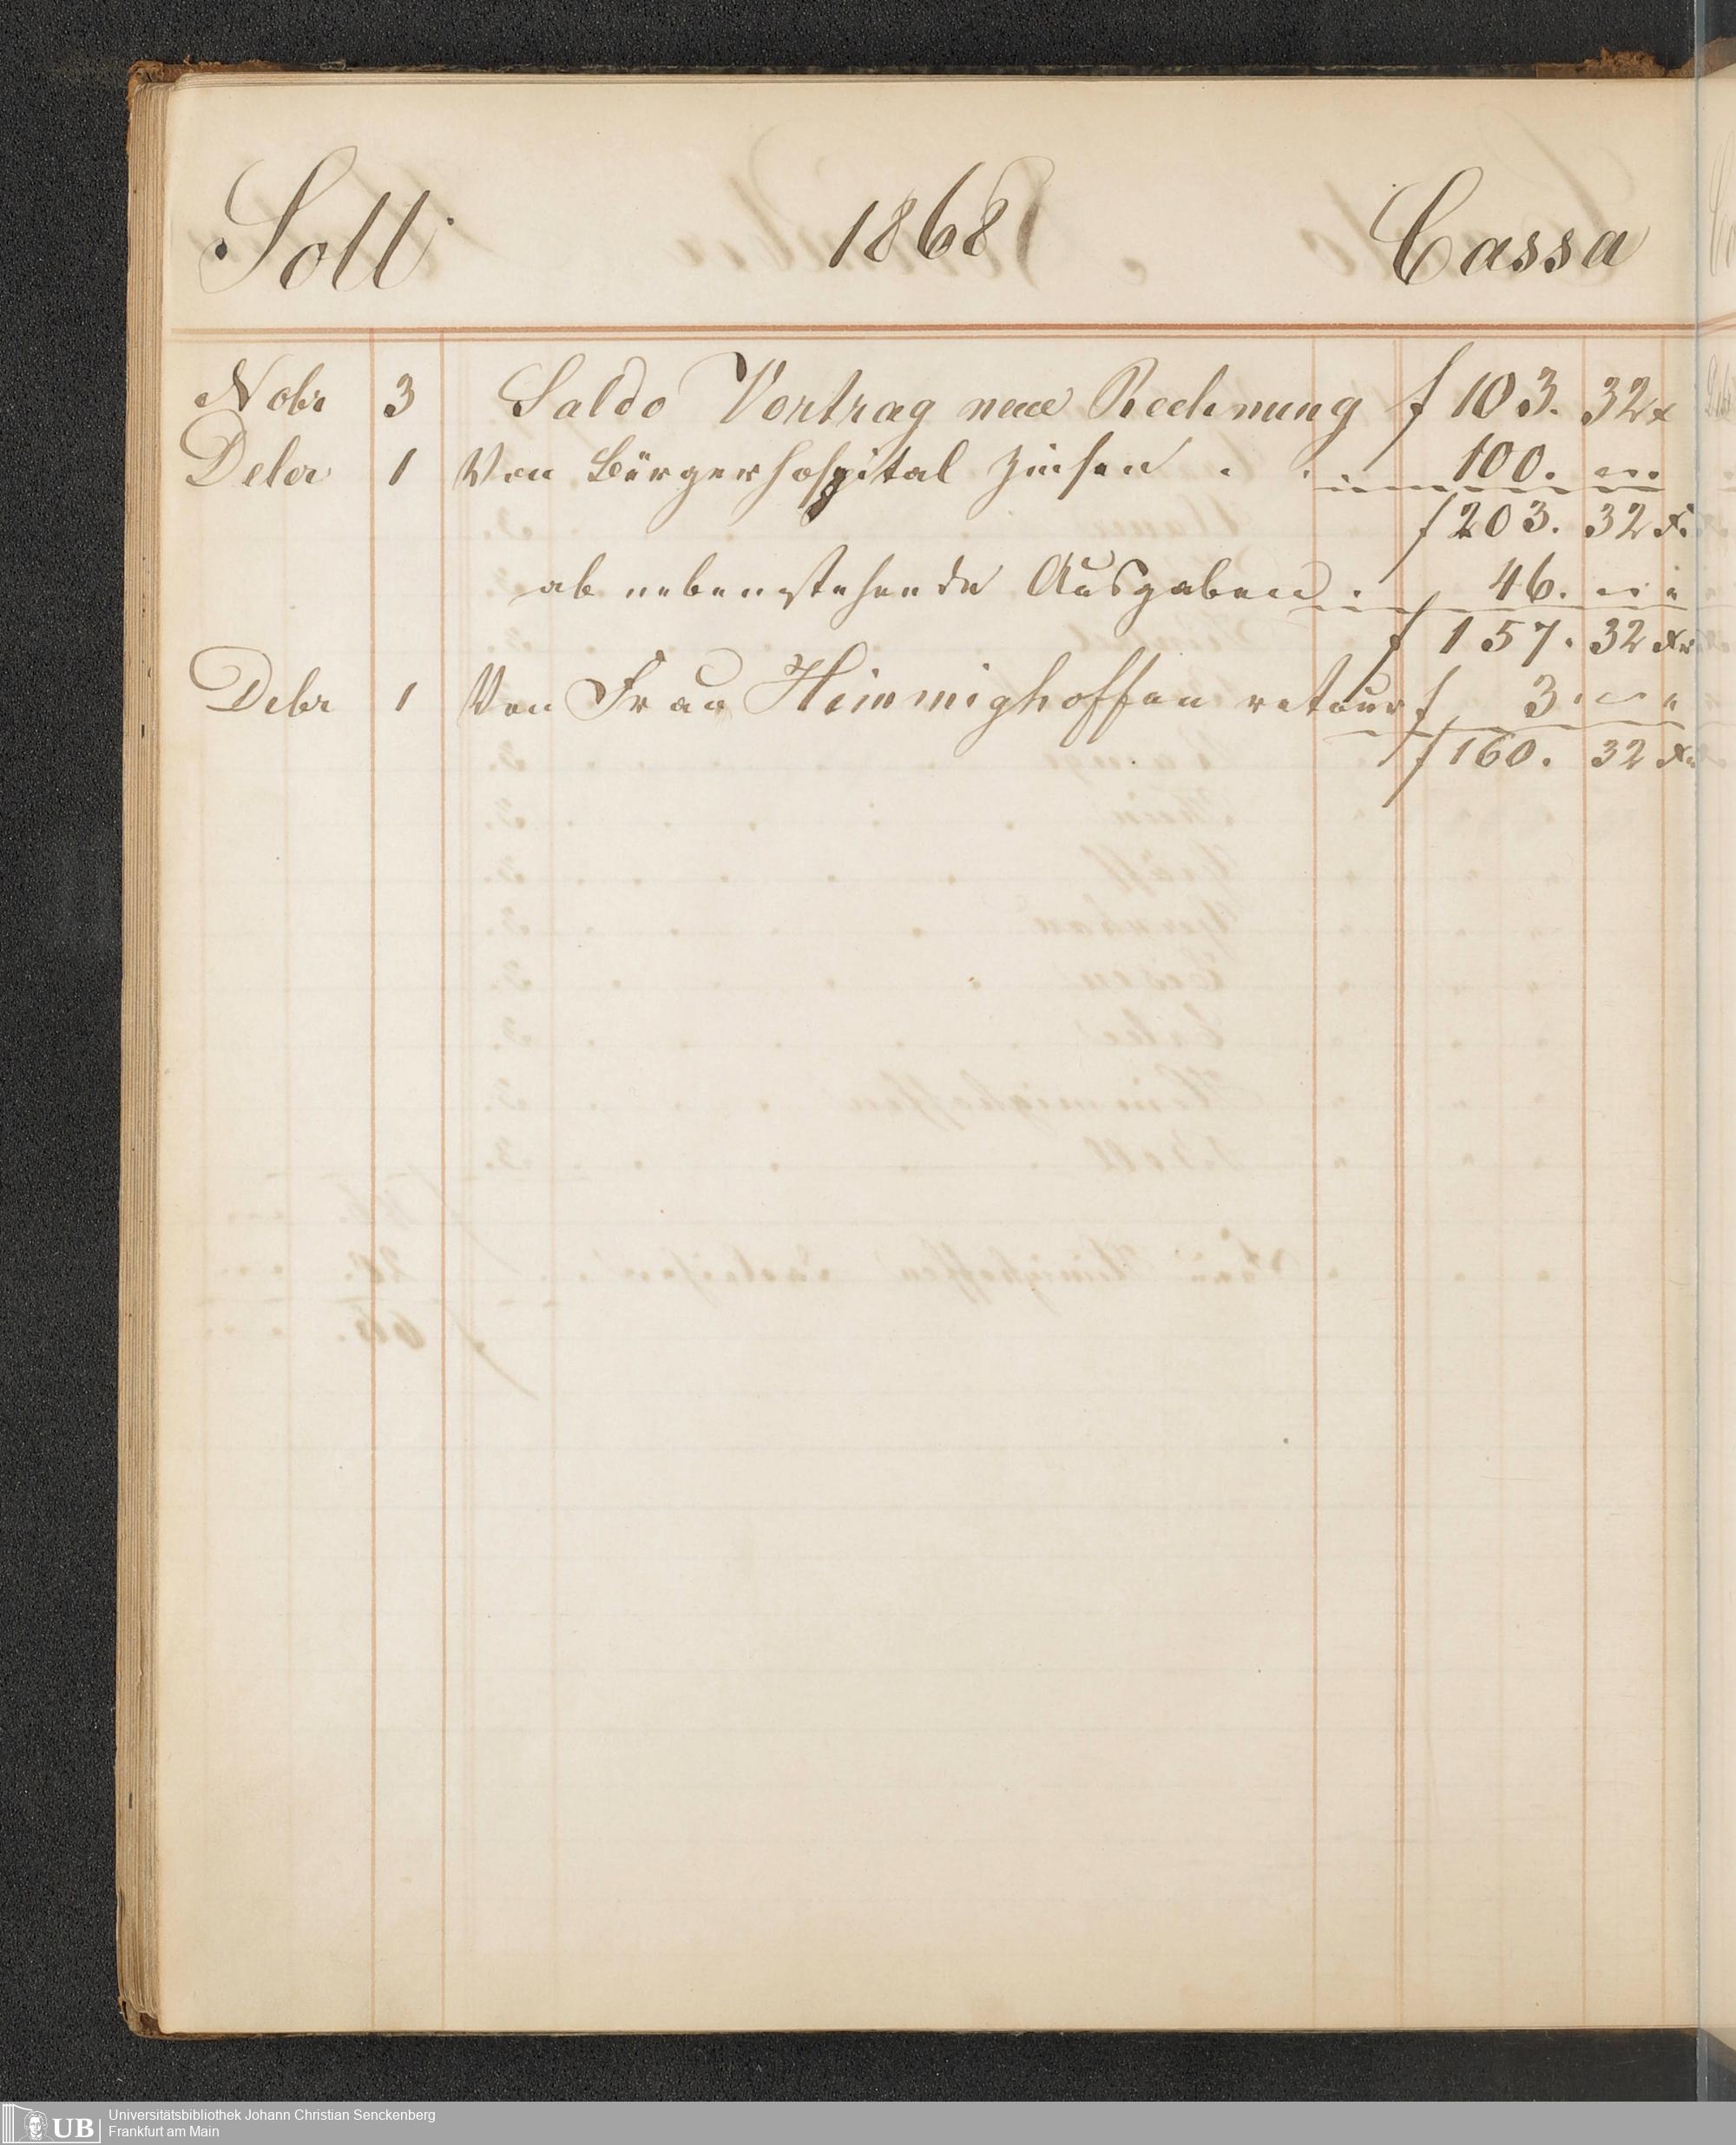 Soll 1868 Cassa
Nobr 3 Saldo Vortrag neue Rechnung f 103. 32 x
Debr 1 Von Bürgerhospital Zinsen . . . 100. „ „
f 203. 32 xr
ab nebenstehende Ausgaben . 46. „ „
f 157. 32 xr
Debr 1 Von Frau Heimmighoffen retour f 3. „ „
f 160. 32 xr
UB Universitätsbibliothek Johann Christian Senckenberg
Frankfurt am Main